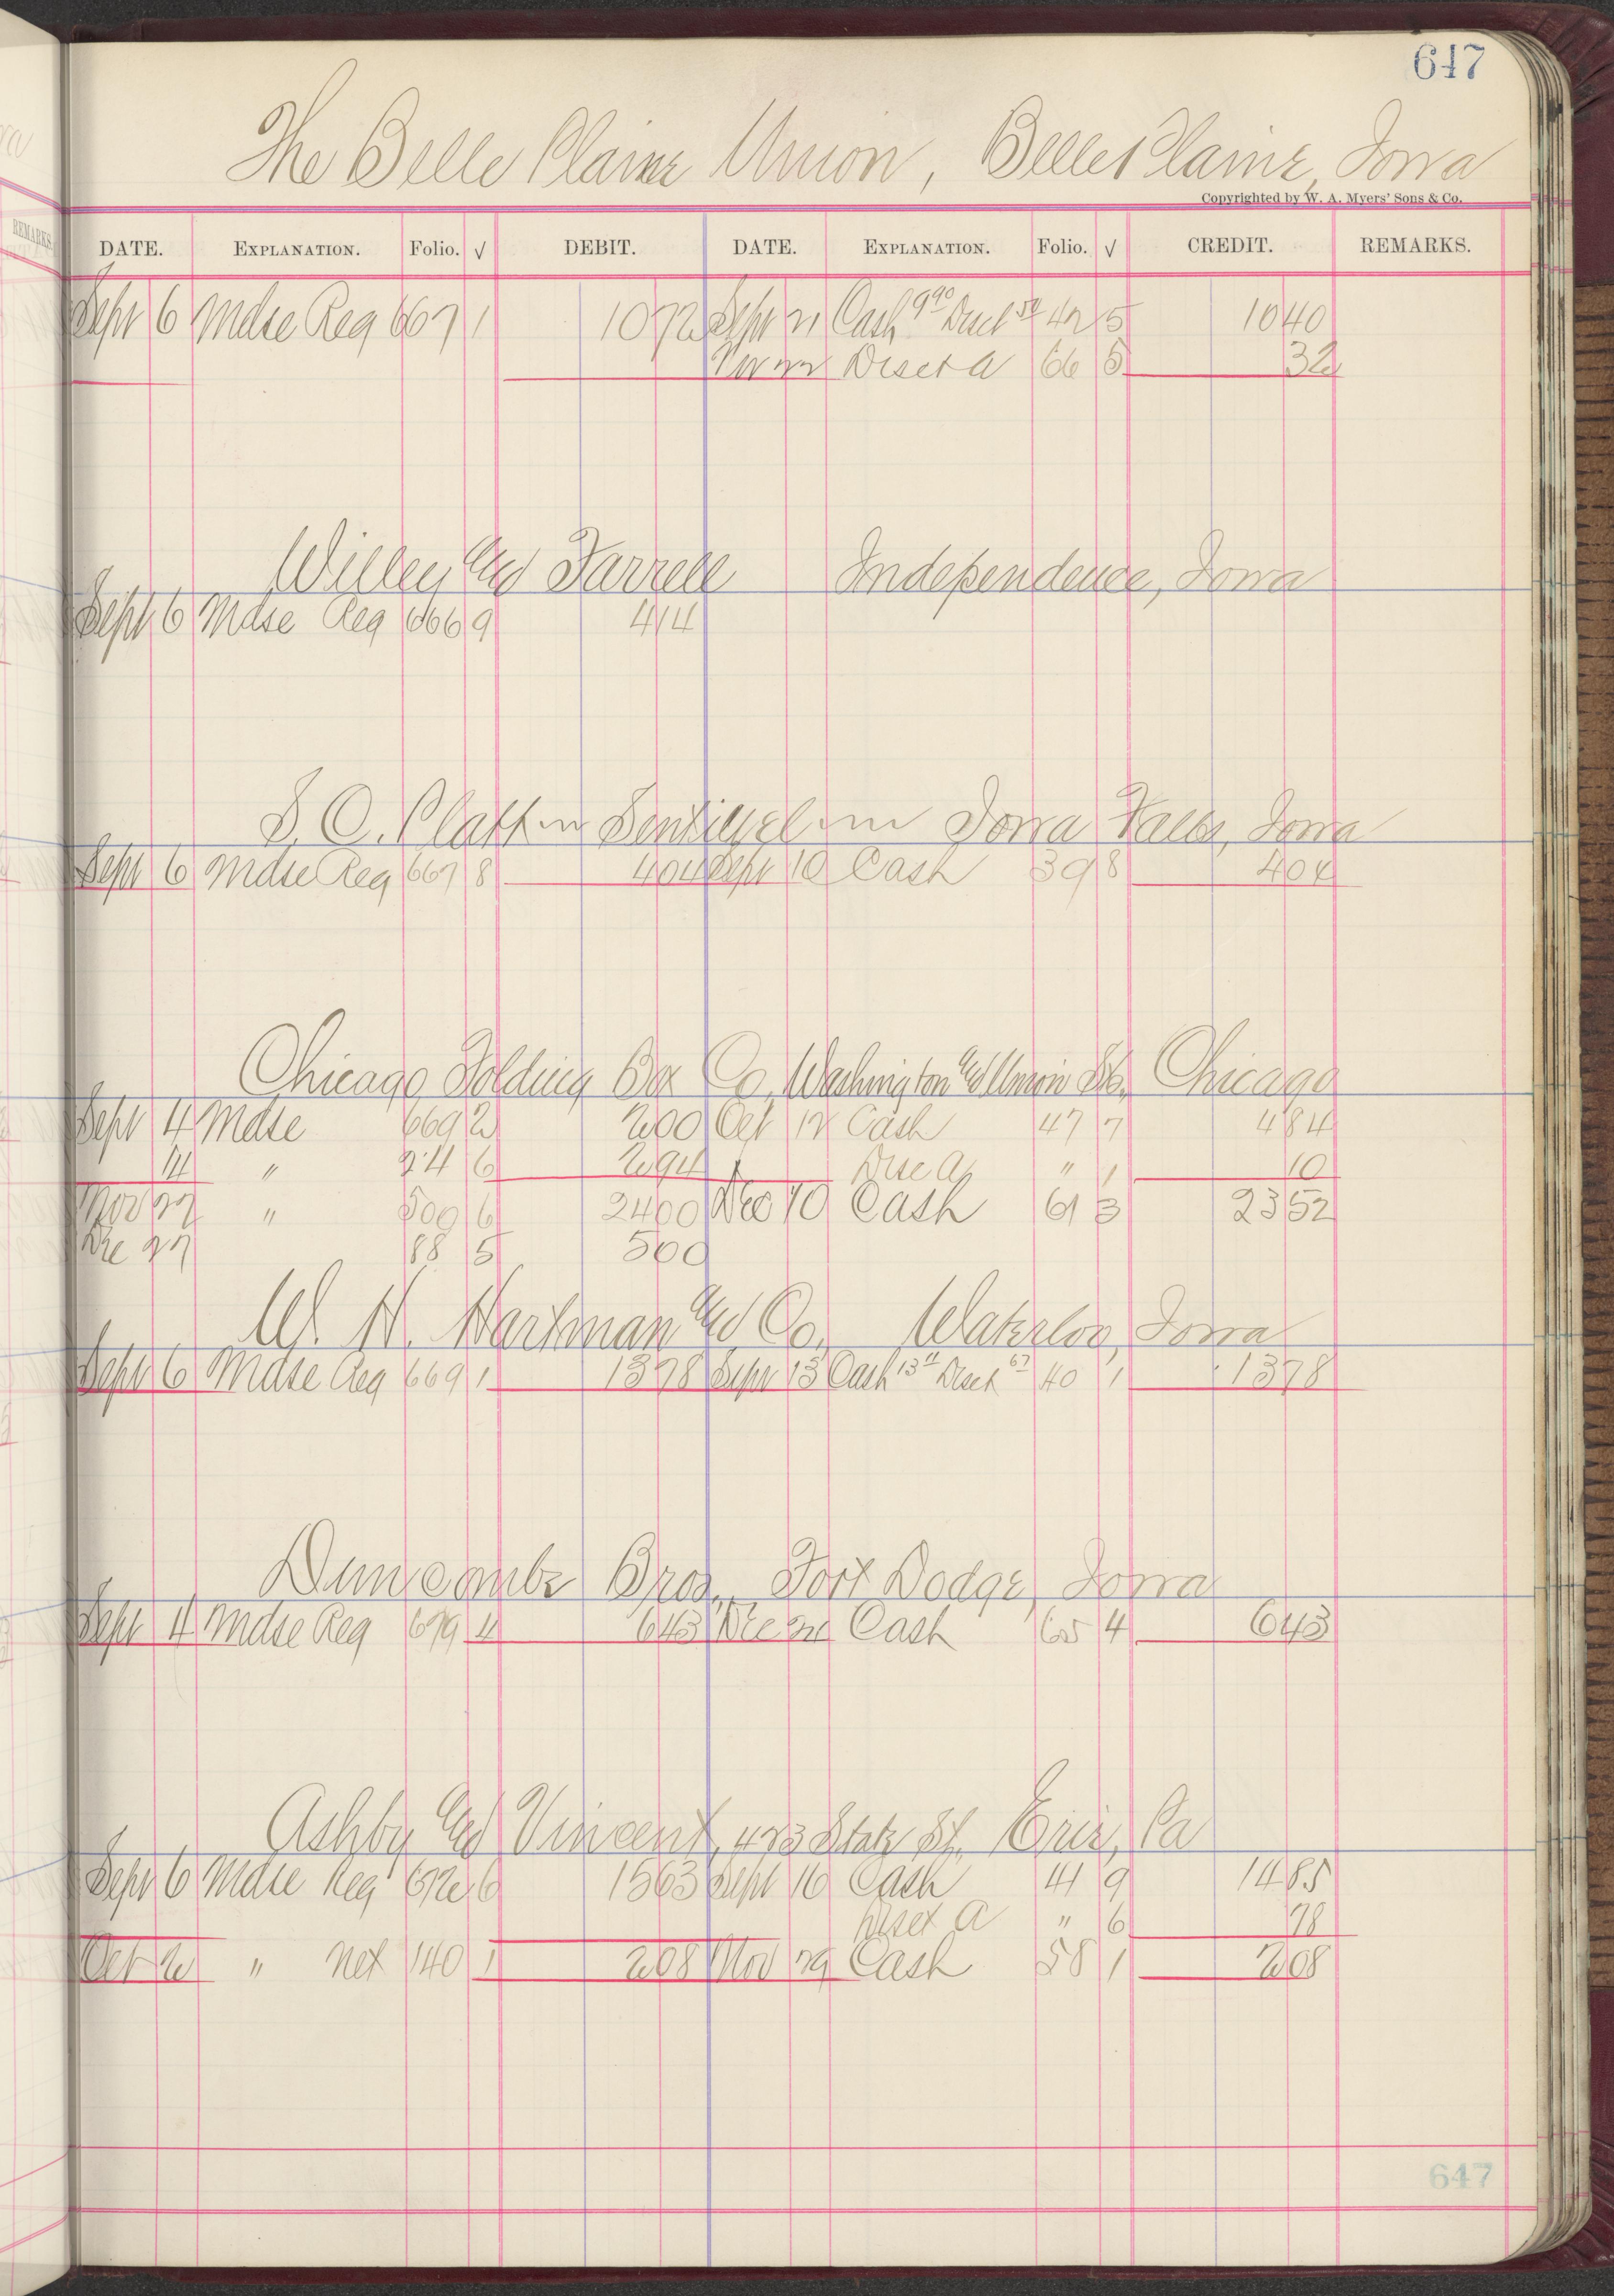 647
The Belle Plaine Union, Belle Plaine, Iowa
Copyrighted by W. A. Myers' Sons & Co.
REMARKS.
DATE. EXPLANATION. Folio. √ DEBIT. DATE. EXPLANATION. Folio. √ CREDIT. REMARKS.
Sept 6 Mdse Reg 667 1 1072 Sept 21 Cash 990 Disct 50 42 5 1040
Disct a 66 5 32
Willey and Farrell Independence, Iowa
Sept 6 Mdse Reg 666 9 414
S. C. Platt Sentinel Iowa Falls, Iowa
Sept 6 Mdse Reg 667 8 404 Sept 10 Cash 39 8 404
Chicago Folding Box Co, Washington and Union Sts. Chicago
Sept 4 Mdse 669 2 200 Oct 12 Cash 47 7 484
14 " 24 6 294 Disc a " 1 10
Nov 27 " 509 6 2400 Dec 10 Cash 61 3 2352
Dec 27 88 5 500
W. H. Hartman and Co. Waterloo, Iowa
Sept 6 Mdse Reg 669 1 1378 Sept 13 Cash 13 11 Disct 67 40 1 1378
Duncombe Bros., Fort Dodge, Iowa
Sept 4 Mdse Reg 679 4 643 Dec Cash 65 4 643
Ashby and Vincent, 423 State St. Erie, Pa
Sept 6 Mdse Reg 672 6 1563 Sept 16 Cash 41 9 1485
Disct a " 6 78
Oct 2 " Net 140 1 208 Nov 29 Cash 58 1 208
647